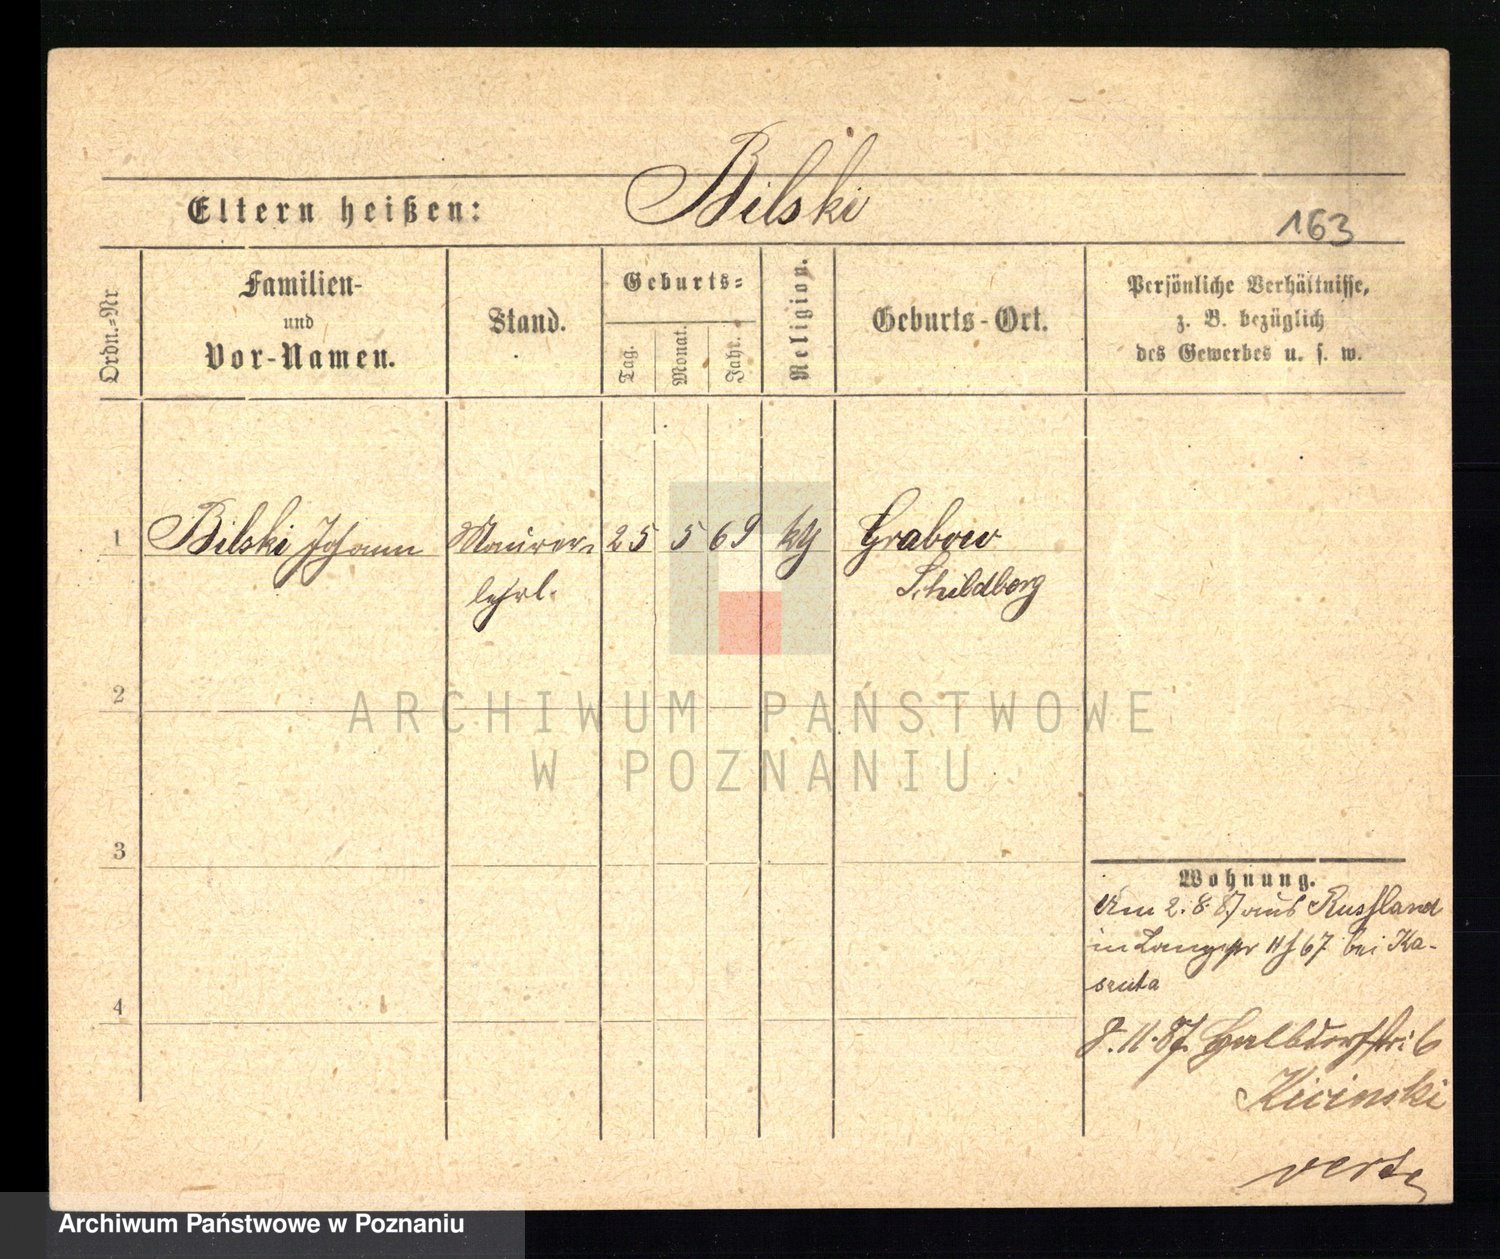 Bilski
Eltern heißen:
163
Ordn.=Nr
Familien-
und
Vor-Namen.
Stand.
Geburts=
Tag.
Monat.
Jahr.
Religion.
Geburts-Ort.
Persönliche Verhältnisse,
z. B. bezüglich
des Gewerbes u. s. w.
1 Bilski Johann Maurer- 25 5 69 Grabow
lehrl. Schildberg
2
3
4
Wohnung.
Am 2.8.87 aus Russland
in 67 bei Ka-
8.11.87. Halbdorfstr. 6
Kicinski
verte
ARCHIWUM PAŃSTWOWE
W POZNANIU
Archiwum Państwowe w Poznaniu